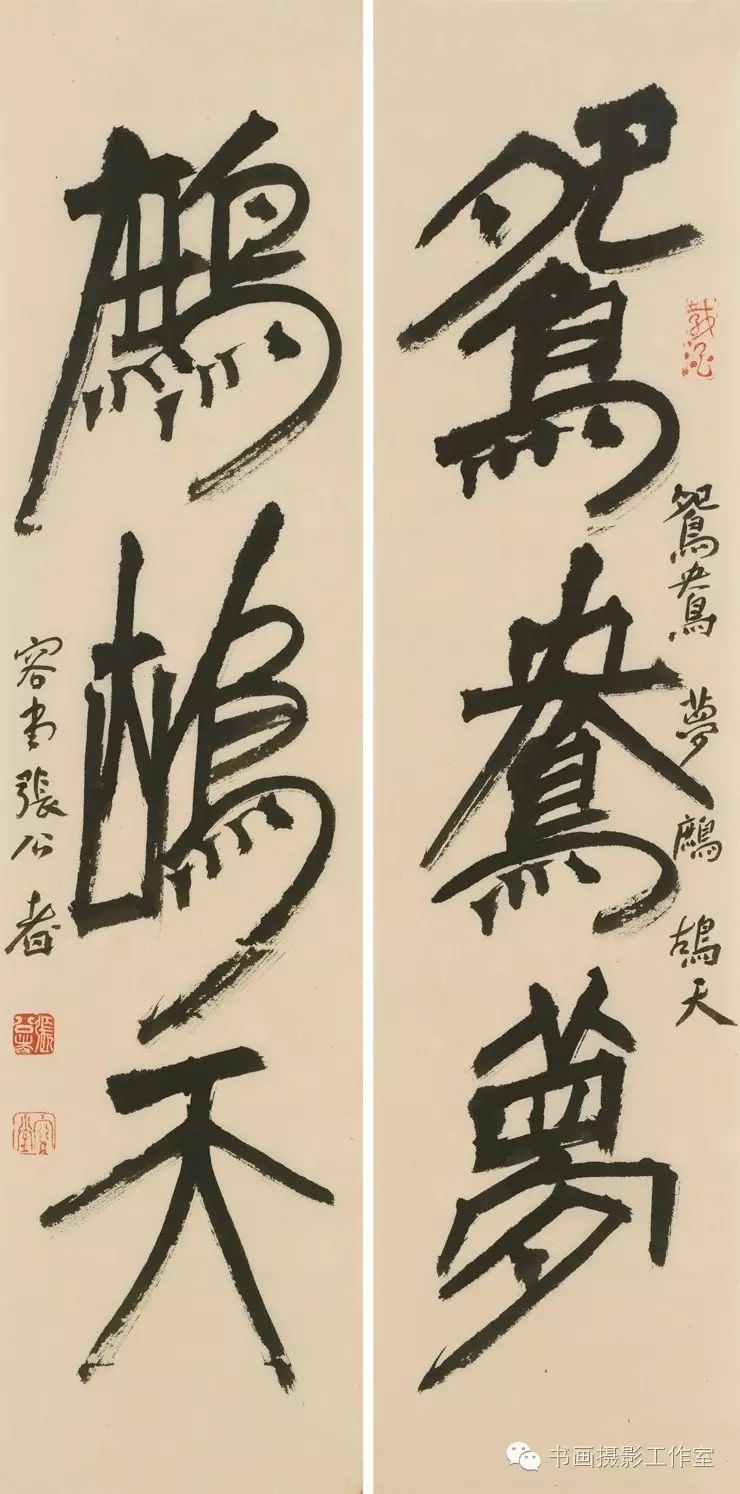 鴛鴦夢
鴛鴦夢鷓鴣天
鷓鴣天
容堂張公者
书画摄影工作室